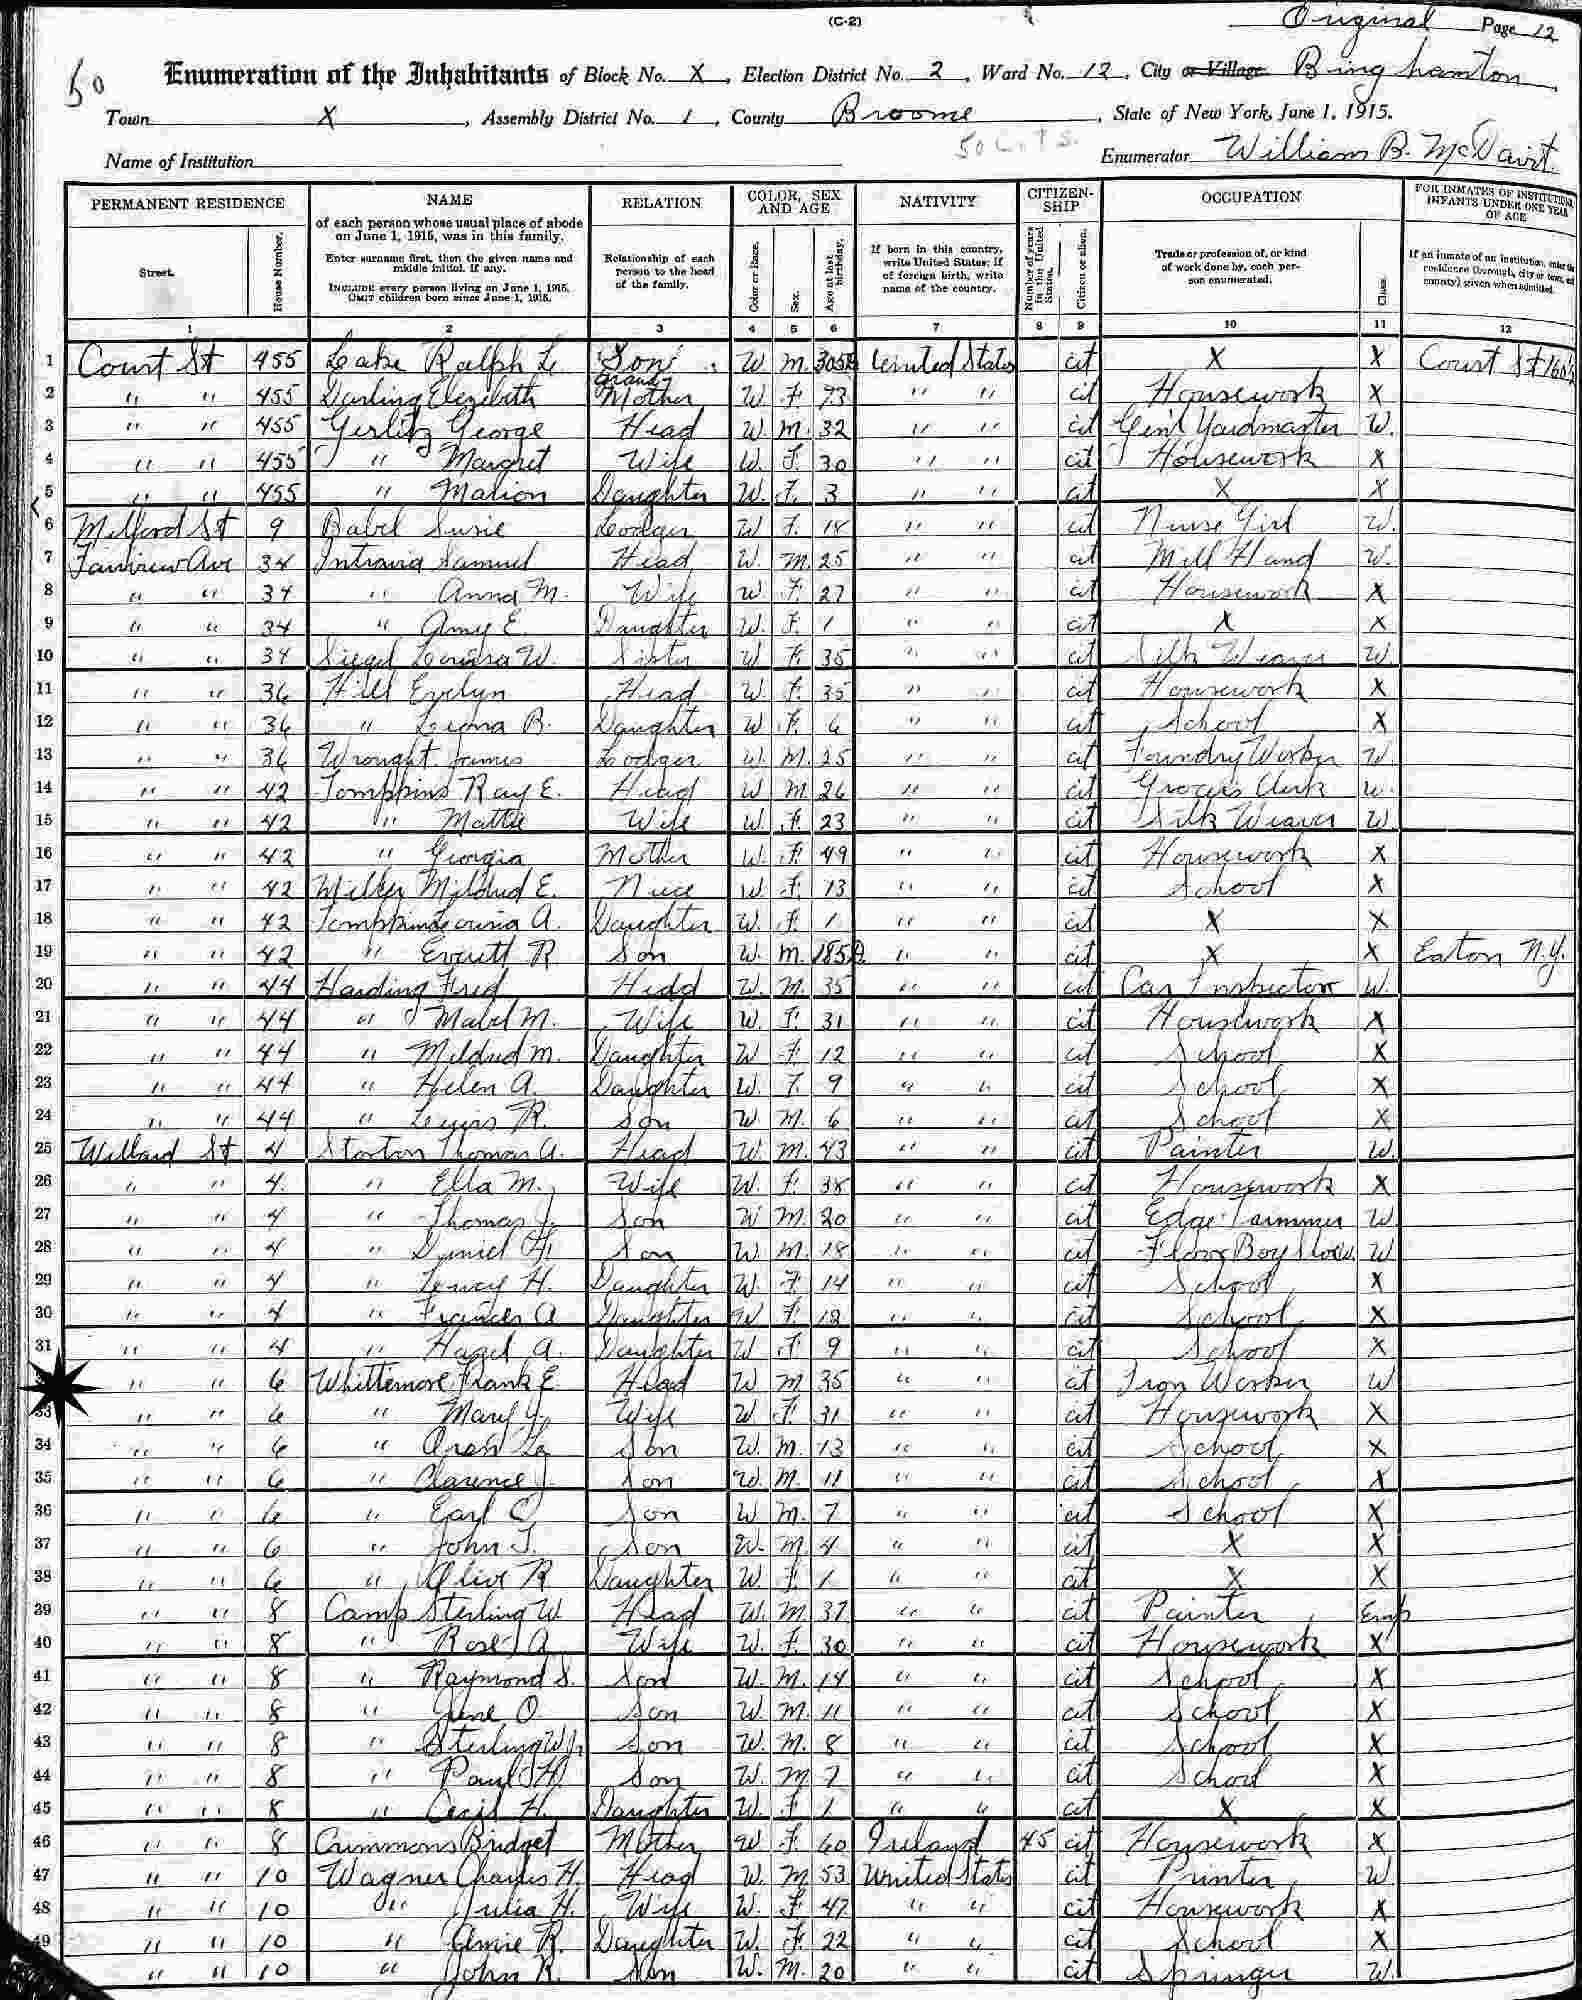 (C-2)
Original Page 12
50
Enumeration of the Inhabitants of Block No. X, Election District No. 2, Ward No. 12, City or Village Binghamton
Town X, Assembly District No. 1, County Broome, State of New York, June 1, 1915.
50 C.I.T.S.
Name of Institution Enumerator William B.
PERMANENT RESIDENCE NAME RELATION COLOR, SEX AND AGE NATIVITY CITIZENSHIP OCCUPATION FOR INMATES OF INSTITUTIONS, INFANTS UNDER ONE YEAR OF AGE
Street. House Number. of each person whose usual place of abode on June 1, 1915, was in this family. Enter surname first, then the given name and middle initial, if any. INCLUDE every person living on June 1, 1915. OMIT children born since June 1, 1915. Relationship of each person to the head of the family. Color or Race. Sex. Age at last birthday. If born in this country, write United States; if of foreign birth, write name of the country. Number of years in the United States. Citizen or alien. Trade or profession of, or kind of work done by, each person enumerated. Class If an inmate of an institution, enter residence through, city or town, and county) given when admitted.
1 2 3 4 5 6 7 8 9 10 11 12
1 Court St 455 Lake Ralph L. Son W. M. 305D United States cit X X Court St
2 " " 455 Darling Elezibeth Grand Mother W. F. 73 " " cit Housework X
3 " " 455 Gerlitz George Head W. M. 32 " " cit Gen'l Yardmaster W.
4 " " 455 " Margret Wife W. F. 30 " " cit Housework X
5 " " 455 " Marion Daughter W. F. 3 " " cit X X
6 Milford St 9 Babel Susie Lodger W. F. 18 " " cit Nurse Girl W.
7 Fairview Ave 34 Samuel Head W. M. 25 " " cit Mill Hand W.
8 " " 34 " Anna M. Wife W. F. 27 " " cit Housework X
9 " " 34 " Amy E. Daughter W. F. 1 " " cit X X
10 " " 34 Siegel Louisa W. Sister W. F. 35 " " cit Silk Weaver W.
11 " " 36 Hill Evelyn Head W. F. 35 " " cit Housework X
12 " " 36 " Leona B. Daughter W. F. 6 " " cit School X
13 " " 36 Wrought James Lodger W. M. 25 " " cit Foundry Worker W.
14 " " 42 Tompkins Ray E. Head W. M. 26 " " cit Grocers Clerk W.
15 " " 42 " Mattie Wife W. F. 23 " " cit Silk Weaver W.
16 " " 42 " Georgia Mother W. F. 49 " " cit Housework X
17 " " 42 Miller Mildred E. Niece W. F. 13 " " cit School X
18 " " 42 Tompkins A. Daughter W. F. 1 " " cit X X
19 " " 42 " Everett R Son W. M. 185D " " cit X X Eaton N.Y.
20 " " 44 Harding Fred Head W. M. 35 " " cit Car Inspector W.
21 " " 44 " Mabel M. Wife W. F. 31 " " cit Housework X
22 " " 44 " Mildred M. Daughter W. F. 12 " " cit School X
23 " " 44 " Helen A. Daughter W. F. 9 " " cit School X
24 " " 44 " Lewis R. Son W. M. 6 " " cit School X
25 Willard St 4 Thomas A. Head W. M. 43 " " cit Painter W.
26 " " 4 " Ella M. Wife W. F. 38 " " cit Housework X
27 " " 4 " Thomas J. Son W. M. 20 " " cit Edge Trimmer W.
28 " " 4 " Daniel H. Son W. M. 18 " " cit Floor Boy W
29 " " 4 " H. Daughter W. F. 14 " " cit School X
30 " " 4 " Frances A Daughter W. F. 12 " " cit School X
31 " " 4 " Hazel A. Daughter W. F. 9 " " cit School X
" " 6 Whittemore Frank E. Head W. M. 35 " " cit Iron Worker W
33 " " 6 " Mary Wife W. F. 31 " " cit Housework X
34 " " 6 " Son W. M. 13 " " cit School X
35 " " 6 " Clarence J. Son W. M. 11 " " cit School X
36 " " 6 " Earl Son W. M. 7 " " cit School X
37 " " 6 " John Son W. M. 4 " " cit X X
38 " " 6 " Olive R Daughter W. F. 1 " " cit X X
39 " " 8 Camp Sterling W. Head W. M. 37 " " cit Painter Emp
40 " " 8 " Rose A Wife W. F. 30 " " cit Housework X
41 " " 8 " Raymond S. Son W. M. 14 " " cit School X
42 " " 8 " Gene O. Son W. M. 11 " " cit School X
43 " " 8 " Sterling W Jr Son W. M. 8 " " cit School X
44 " " 8 " Paul H. Son W. M. 7 " " cit School X
45 " " 8 " H. Daughter W. F. 1 " " cit X X
46 " " 8 Crimmons Bridget Mother W. F. 60 Ireland 45 cit Housework X
47 " " 10 Wagner Charles H. Head W. M. 53 United States cit Printer W.
48 " " 10 " Julia H. Wife W. F. 47 " " cit Housework X
49 " " 10 " R. Daughter W. F. 22 " " cit School X
" " 10 " John R. Son W. M. 20 " " cit Springer W.